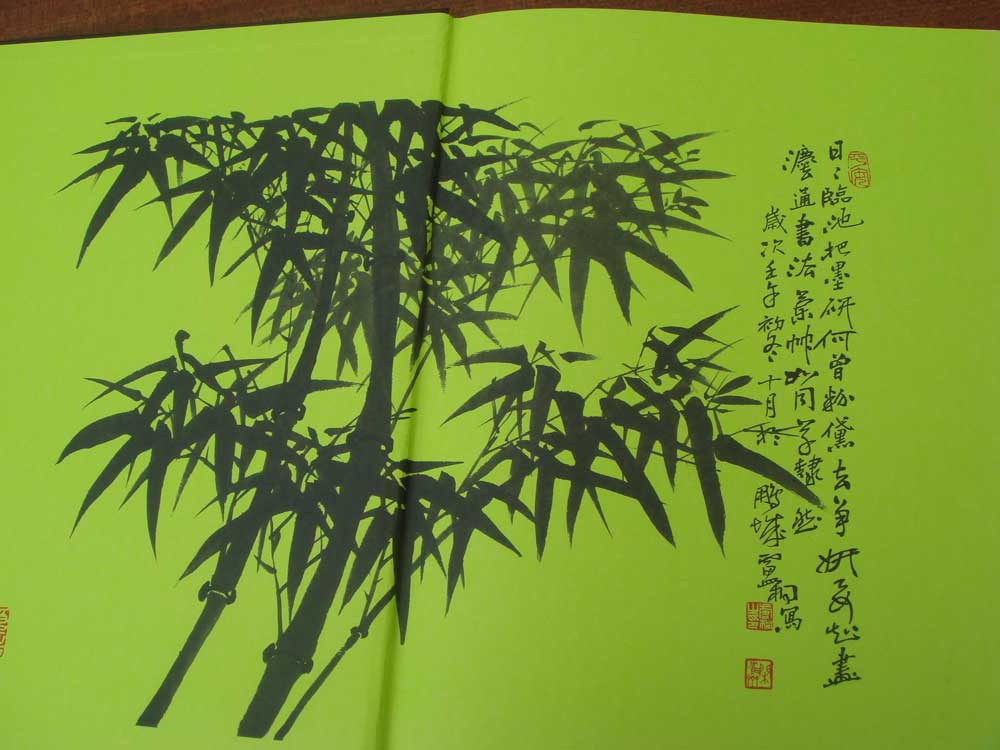 日々臨池把墨研何曾粉黛去爭妍要知畫
灋通書法蘭帥如同草隸然
歲次壬午初冬十月於
鵬城雷翔寫